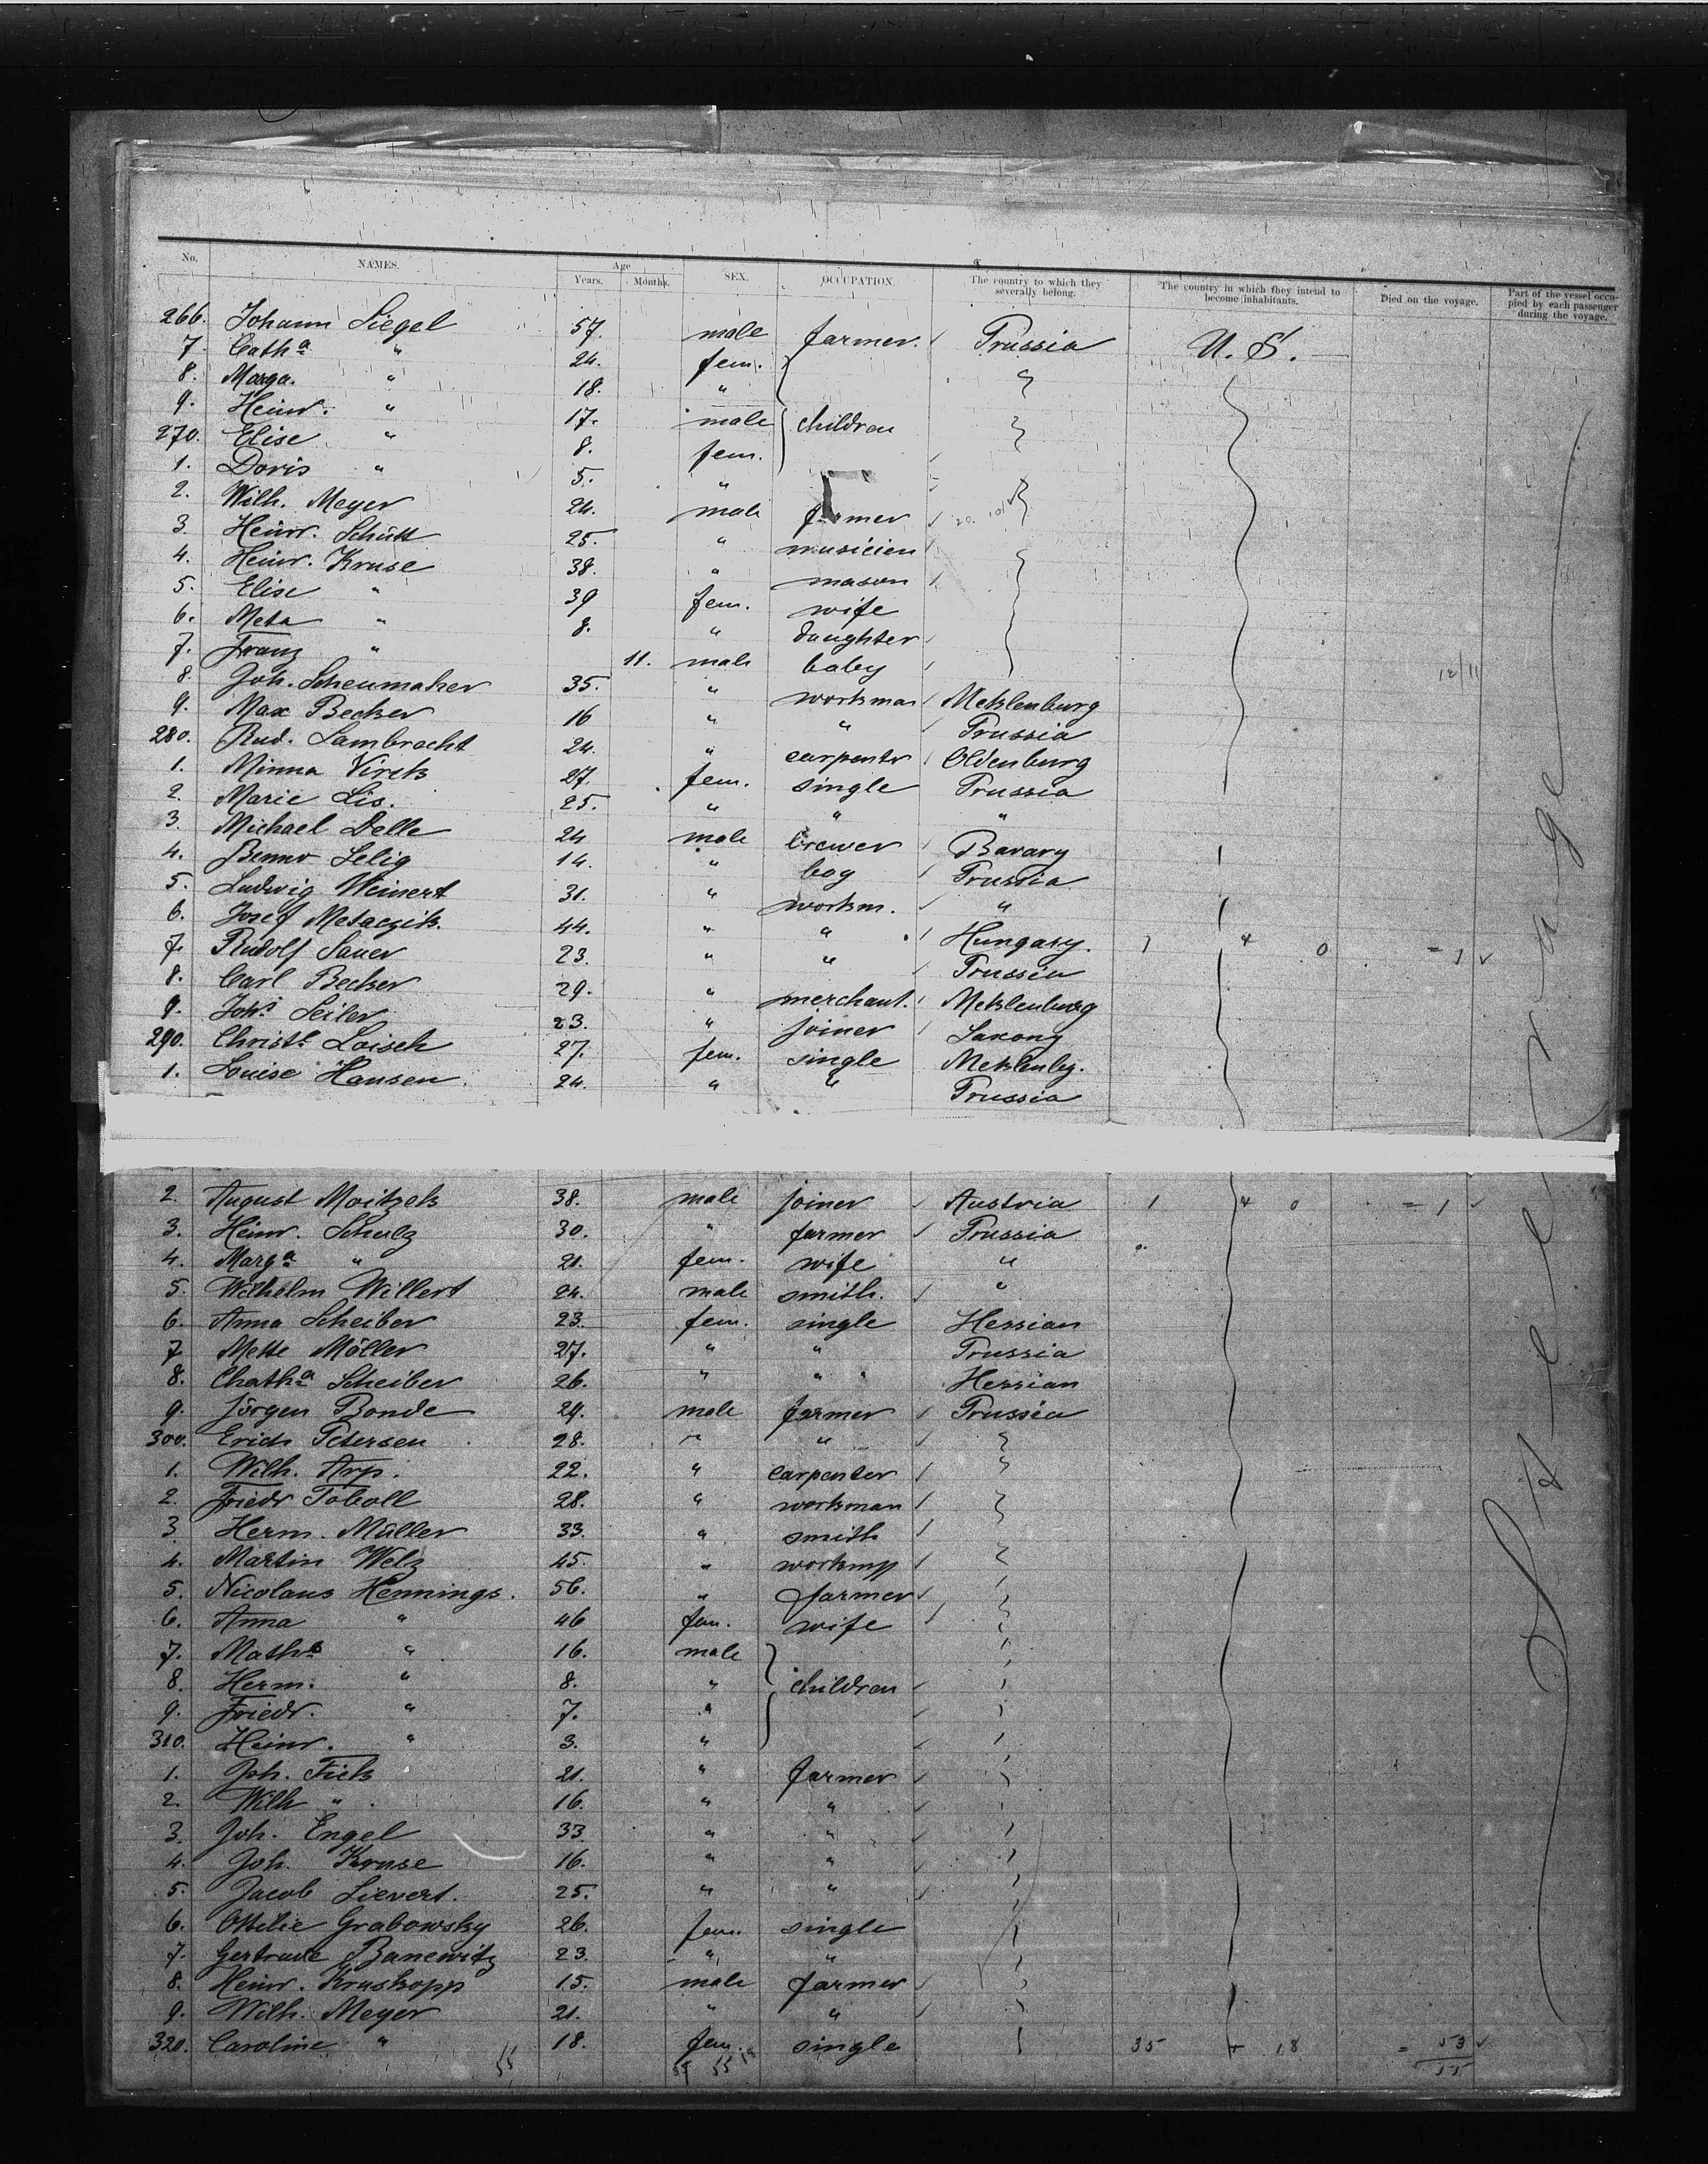 No. NAMES. Age Years. Months. SEX. OCCUPATION. The country to which they severally belong. The country in which they intend to become inhabitants. Died on the voyage. Part of the vessel occupied by each passenger during the voyage.
266. Johann Siegel 57. male farmer. Prussia U. S.
7. Cath.a " 24. fem. "
8. Marga. " 18. "
9. Heinr. " 17. male children "
270. Elise " 8. fem.
1. Doris " 5. "
2. Wilh. Meyer 24. male farmer "
3. Heinr. Schütt 25. " musicien
4. Heinr. Kruse 38. " mason
5. Elise " 39 fem. wife
6. Meta " 8. " daughter
7. Franz " 11. male baby
8. Joh. Scheumaker 35. " workman Meklenburg
9. Max Becker 16 " " Prussia
280. Rud. Lambrecht 24. " carpenter Oldenburg
1. Minna Virck 27. fem. single Prussia
2. Marie Lis. 25. " " "
3. Michael Delle 24 male brewer Bavary
4. Benno Selig 14. " boy Prussia
5. Ludwig Weinert 31. " workm. "
6. Josef Metaczik. 44. " " Hungary. 1 + 0 = 1
7. Rudolf Sauer 23. " " Prussia
8. Carl Becker 29. " merchant. Meklenburg
9. Joh.s Seiler 23. " joiner Saxony
290. Christ.e Loisch 27. fem. single Meklenbg.
1. Louise Hansen. 24. " " Prussia
2. August Moitzek 38. male joiner Austria 1 + 0 = 1
3. Heinr. Schulz 30. " farmer Prussia
4. Marg.a " 21. fem. wife "
5. Wilhelm Willert 24. male smith. "
6. Anna Scheiber 23. fem. single Hessian
7 Mette Möller 27. " " Prussia
8. Chath.a Scheiber 26. " " Hessian
9. Jörgen Bonde 29. male farmer Prussia
300. Erich Petersen 28. " " "
1. Wilh. Arp. 22. " carpenter "
2. Friedr Toboll 28. " workman
3 Herm. Müller 33. " smith
4. Martin Welz 45. " workm
5. Nicolaus Hennings. 56. " farmer
6. Anna " 46 fem. wife
7. Math.s " 16. male
8. Herm. " 8. " children
9. Friedr. " 7. "
310. Heinr. " 3. "
1. Joh. Fick 21. " farmer
2. Wilh " 16. " "
3. Joh. Engel 33 " "
4. Joh. Kruse 16. " "
5. Jacob Sievert. 25. " "
6. Ottilie Grabowsky 26. fem. single
7. Gertrude Banewitz 23. " "
8. Heinr. Kruskopp 15. male farmer
9. Wilh. Meyer 21. " "
320. Caroline " 18. fem. single 35 + 18 = 53
55
Steerage